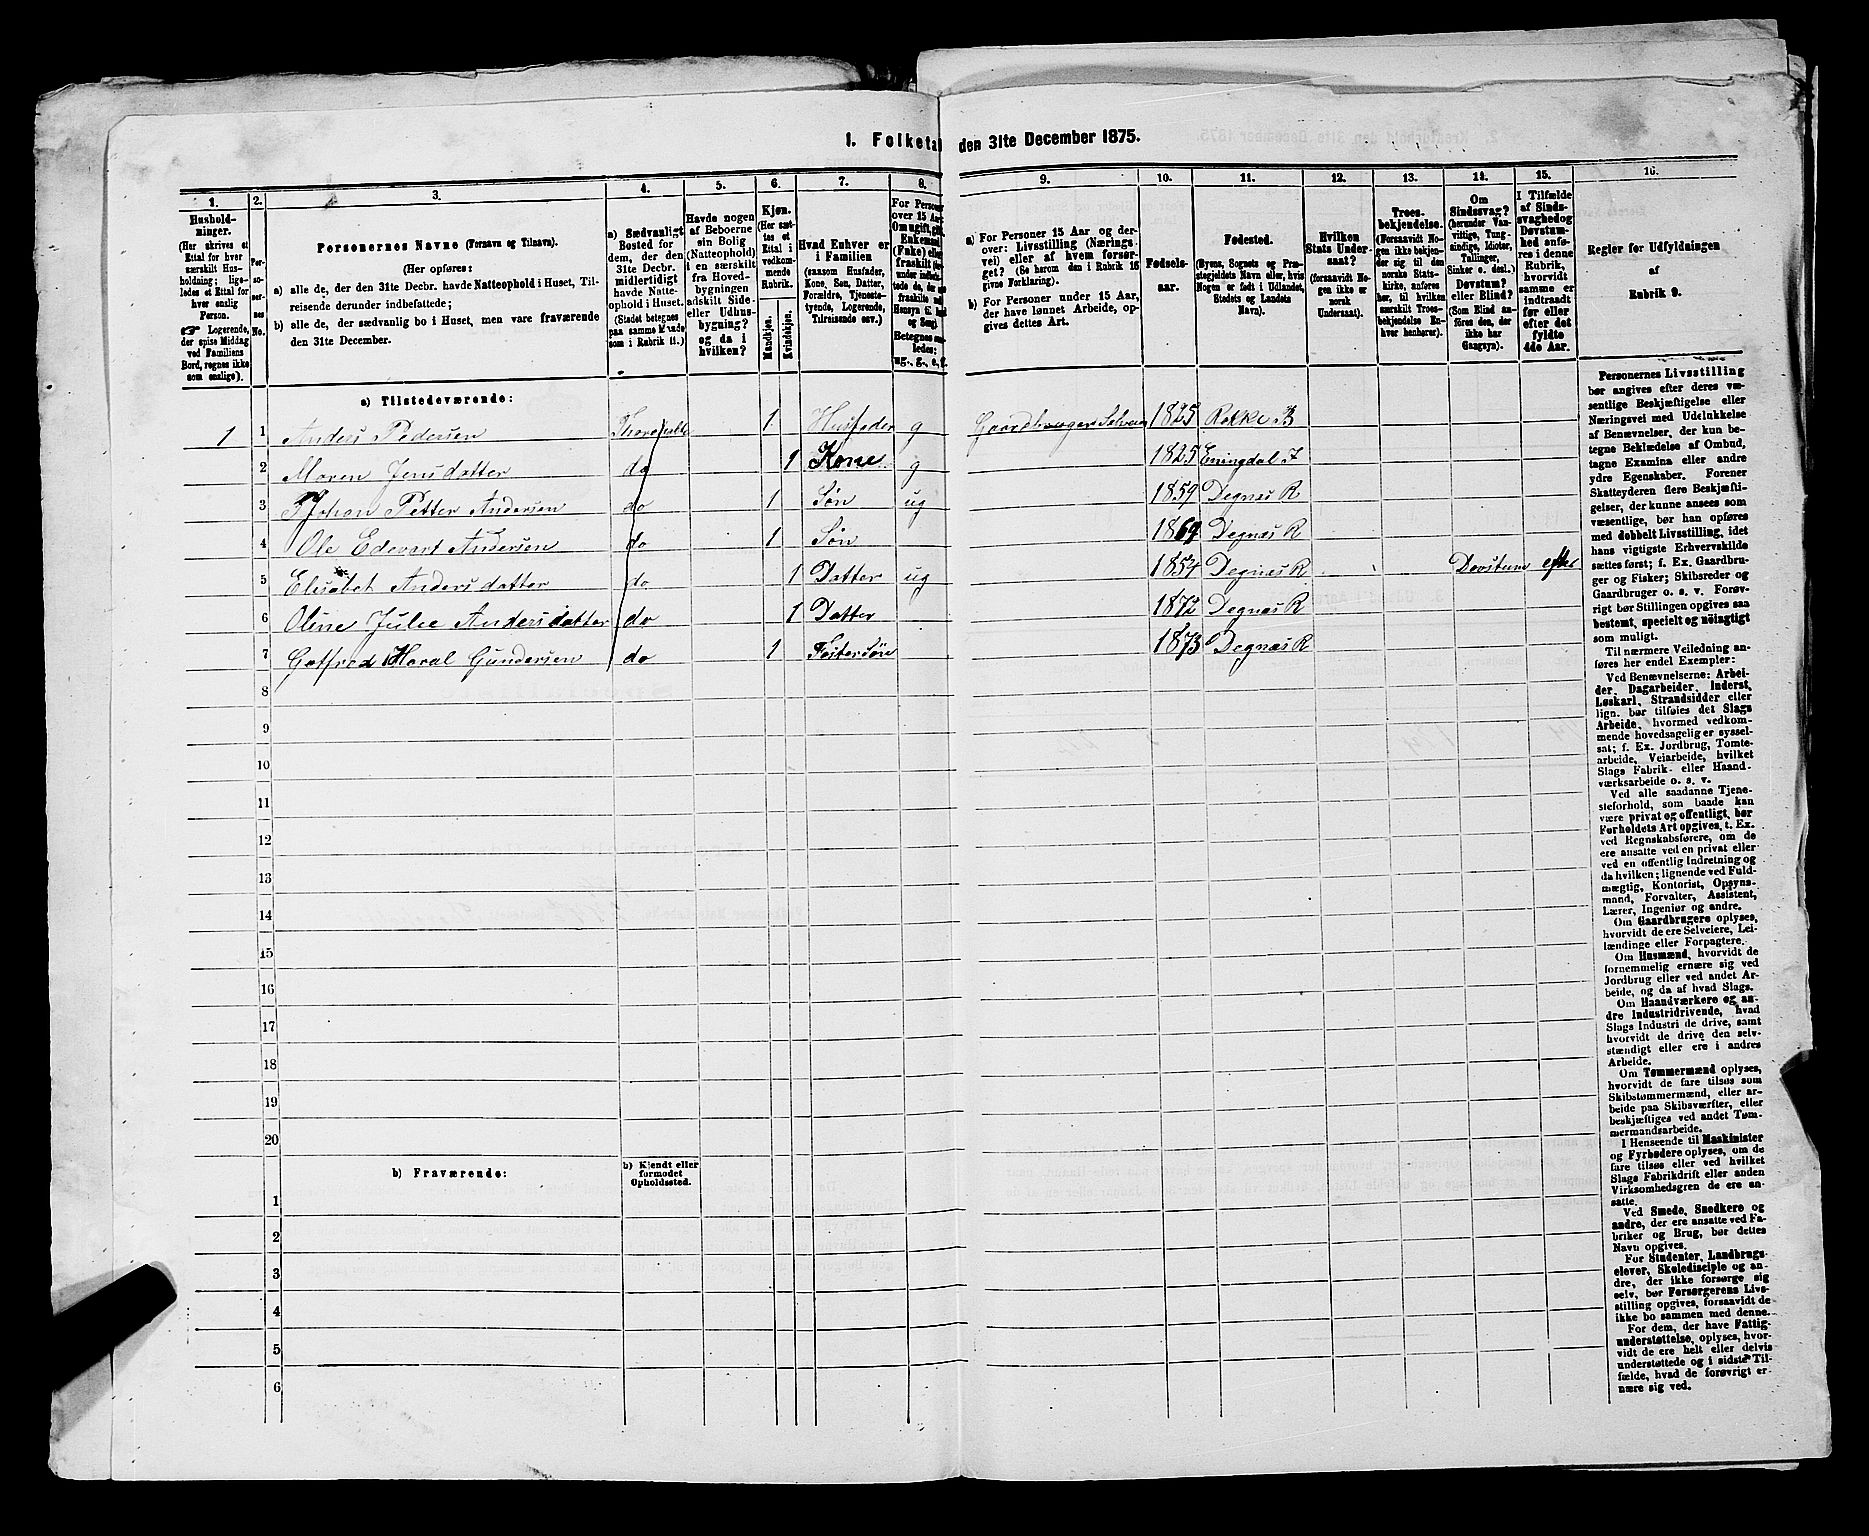 1. Folketa den 31te December 1875.
1. 2. 3. 4. 5. 6. 7. 8. 9. 10. 11. 12. 13. 14. 15. 16.
Hushold-
ninger.
(Her skrives et
Ettal for hver
særskilt Hus-
holdning; lige-
ledes et Ettal for
hver enslig
Person.
☞ Logerende,
der spise Middag
ved Familiens
Bord, regnes ikke
som enslige).
Per-
so-
ner-
nes
No.
Personernes Navne (Fornavn og Tilnavn).
(Her opføres:
a) alle de, der den 31te Decbr. havde Natteophold i Huset, Til-
reisende derunder indbefattede;
b) alle de, der sædvanlig bo i Huset, men vare fraværende
den 31te December.
a) Sædvanligt
Bosted for
dem, der den
31te Decbr.
midlertidigt
havde Natte-
ophold i Huset.
(Stedet betegnes
paa samme Maade
som i Rubrik 11.)
Havde nogen
af Beboerne
sin Bolig
(Natteophold)
i en særskilt
fra Hoved-
bygningen
adskilt Side-
eller Udhus-
bygning?
og da i
hvilken?
Kjøn.
(Her sæt-
tes et
Ettal i
vedkom-
mende
Rubrik.
Mandkjøn.
Kvindekjøn.
Hvad Enhver er
i Familien
(saasom Husfader,
Kone, Søn, Datter,
Forældre, Tjeneste-
tyende, Logerende,
Tilreisende osv.)
For Personer
over 15 Aar:
Om ugift, gift,
Enkemand
(Enke) eller
fraskilt
ug., g., e., f.
a) For Personer 15 Aar og der-
over: Livsstilling (Nærings-
vei) eller af hvem forsør-
get? (Se herom den i Rubrik 16
givne Forklaring).
b) For Personer under 15 Aar,
der have lønnet Arbeide, op-
gives dettes Art.
Fødsels-
aar.
Fødested.
(Byens, Sognets og Præ-
stegjeldets Navn eller, hvis
Nogen er født i Udlandet,
Stedets og Landets
Navn).
Hvilken
Stats Under-
saat?
(forsaavidt No-
gen ikke er
norsk
Undersaat).
Troes-
bekjendelse.
(Forsaavidt No-
gen ikke bekjen-
der sig til den
norske Stats-
kirke, anføres
her, til hvilken
særskilt Troes-
bekjendelse En-
hver henhører).
Om
Sindssvag?
(herunder Van-
vittige, Tung-
sindige, Idioter,
Tullinger,
Sinker o. desl.)
Døvstum?
eller Blind?
(Som Blind an-
føres den, der
ikke har
Gangsyn).
I Tilfælde
af Sinds-
svaghed og
Døvstum-
hed anfø-
res i denne
Rubrik,
hvorvidt
samme er
indtraadt
før eller
efter det
fyldte
4de Aar.
Regler for Udfyldningen
af
Rubrik 9.
a) Tilstedeværende:
1 1 Anders Pedersen 1 Husfader g Gaardbruger Selveier 1825 Rokke B
2 Maren Jensdatter do 1 Kone g 1825 Enningdal I
3 Johan Petter Andersen do 1 Søn ug 1859 Degnæs R
4 Ole Edevart Andersen do 1 Søn 1869 Degnæs R
5 Elisabet Andersdatter do 1 Datter ug 1854 Degnæs R Døvstum efter
6 Oline Julie Andersdatter do 1 Datter 1872 Degnæs R
7 Gotfred Haral Gundersen do 1 Fostersøn 1873 Degnæs R
8
9
10
11
12
13
14
15
16
17
18
19
20
b) Fraværende:
b) Kjendt eller
formodet
Opholdssted.
1
2
3
4
5
6
Personernes Livsstilling
bør angives efter deres væ-
sentlige Beskjæftigelse eller
Næringsvei med Udelukkelse
af Benævnelser, der kun be-
tegne Beklædelse af Ombud,
tagne Examina eller andre
ydre Egenskaber. Forener
Skatteyderen flere Beskjæfti-
gelser, der kunne ansees som
væsentlige, bør han opføres
med dobbelt Livsstilling, idet
hans vigtigste Erhvervskilde
sættes først; f. Ex. Gaardbru-
ger og Fisker; Skibsreder og
Gaardbruger o. s. v. Forøv-
rigt bør Stillingen opgives saa
bestemt, specielt og nøiagtigt
som muligt.
Til nærmere Veiledning an-
føres her endel Exempler:
Ved Benævnelserne: Arbei-
der, Dagarbeider, Inderst,
Løskarl, Strandsidder eller
lign. bør tilføies det Slags
Arbeide, hvormed vedkom-
mende hovedsagelig er syssel-
sat; f. Ex. Jordbrug, Tomte-
arbeide, Veiarbeide, hvilket
Slags Fabrik- eller Haand-
værksarbeide o. s. v.
Ved alle saadanne Tjene-
steforhold, som baade kan
være privat og offentligt, bør
Forholdets Art opgives, t. Ex.
ved Regnskabsførere, om de
ere ansatte ved en privat eller
ved en offentlig Indretning og
da hvilken; lignende ved Fuld-
mægtig, Kontorist, Opsyns-
mand, Forvalter, Assistent,
Lærer, Ingeniør og andre.
Om Gaardbrugere oplyses,
hvorvidt de ere Selveiere, Lei-
lændinge eller Forpagtere.
Om Husmænd, hvorvidt de
fornemmelig ernære sig ved
Jordbrug eller ved andet Ar-
beide, og da af hvad Slags.
Om Haandværkere og an-
dre Industridrivende, hvad
Slags Industri de drive, samt
hvorvidt de drive den selv-
stændigt eller ere i andres
Arbeide.
Om Tømmermænd oplyses,
hvorvidt de fare tilsøs som
Skibstømmermænd, eller ar-
beide paa Skibsværfter, eller
beskjæftiges ved andet Tøm-
mermandsarbeide.
I Henseende til Maskinister
og Fyrbødere oplyses, om de
fare tilsøs eller ved hvilket
Slags Fabrikdrift eller anden
Virksomhedsgren de ere an-
satte.
Ved Smede, Snedkere og
andre, der ere ansatte ved Fa-
briker og Brug, bør dettes
Navn opgives.
For Studenter, Landbrugs-
elever, Skoledisciple og an-
dre, der ikke forsørge sig
selv, bør Forsørgerens Livs-
stilling opgives, forsaavidt de
ikke bo sammen med denne.
For dem, der have Fattig-
understøttelse, oplyses, hvor-
vidt de ere helt eller delvis
understøttede og i sidste Til-
fælde, hvad de forøvrigt er-
nære sig ved.